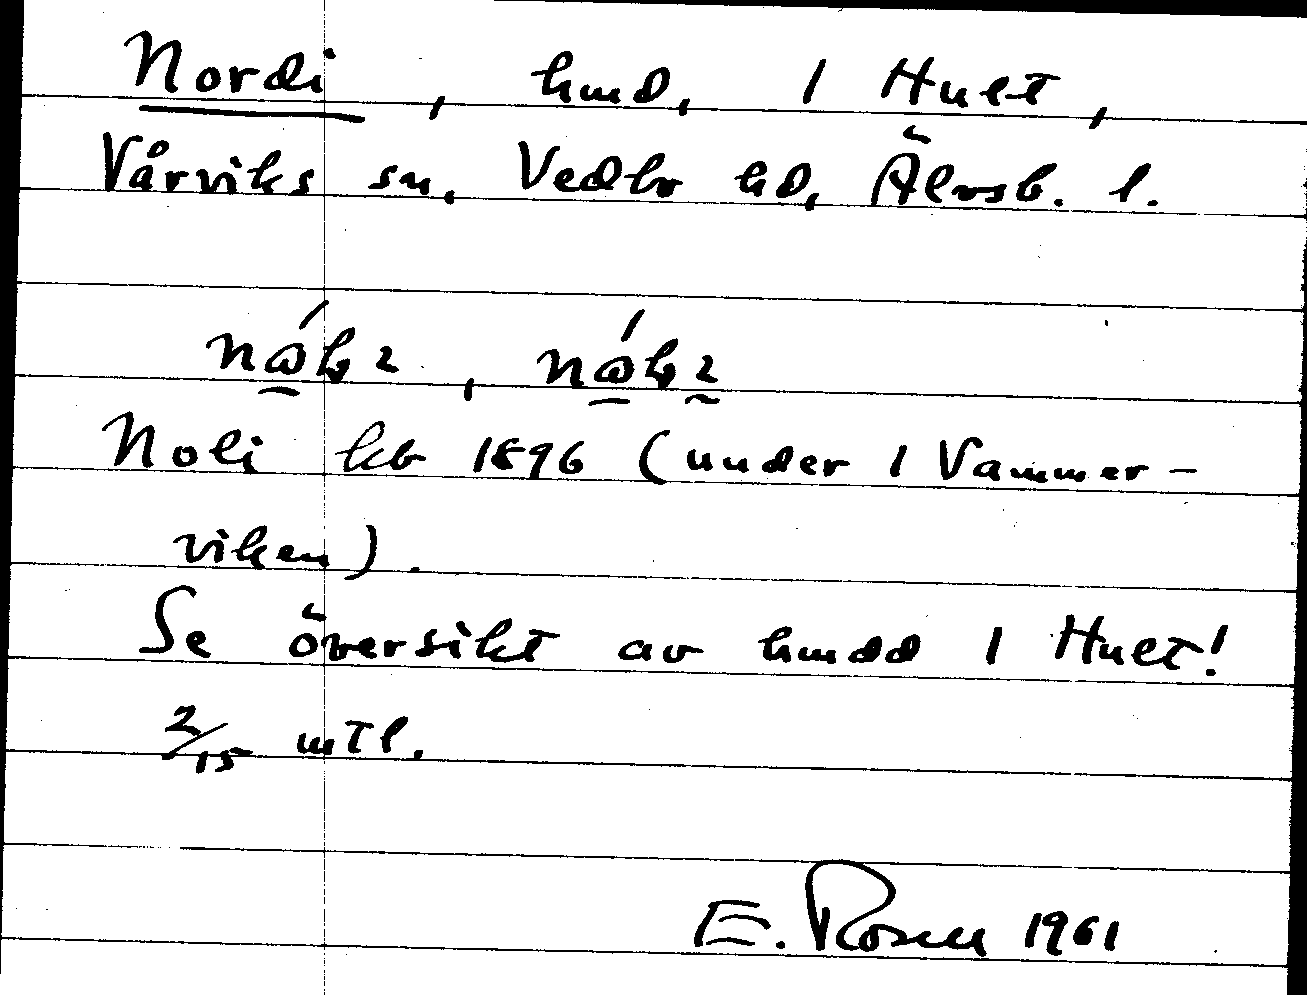 Nordi, hmd, 1 Hult,
Vårviks sn, Vedbo hd, Älvsb. l.
Noli kb 1896 (under 1 Vammer-
viken).
Se översikt av hmdd 1 Hult!
2/15 mtl.
E. Rosell 1961